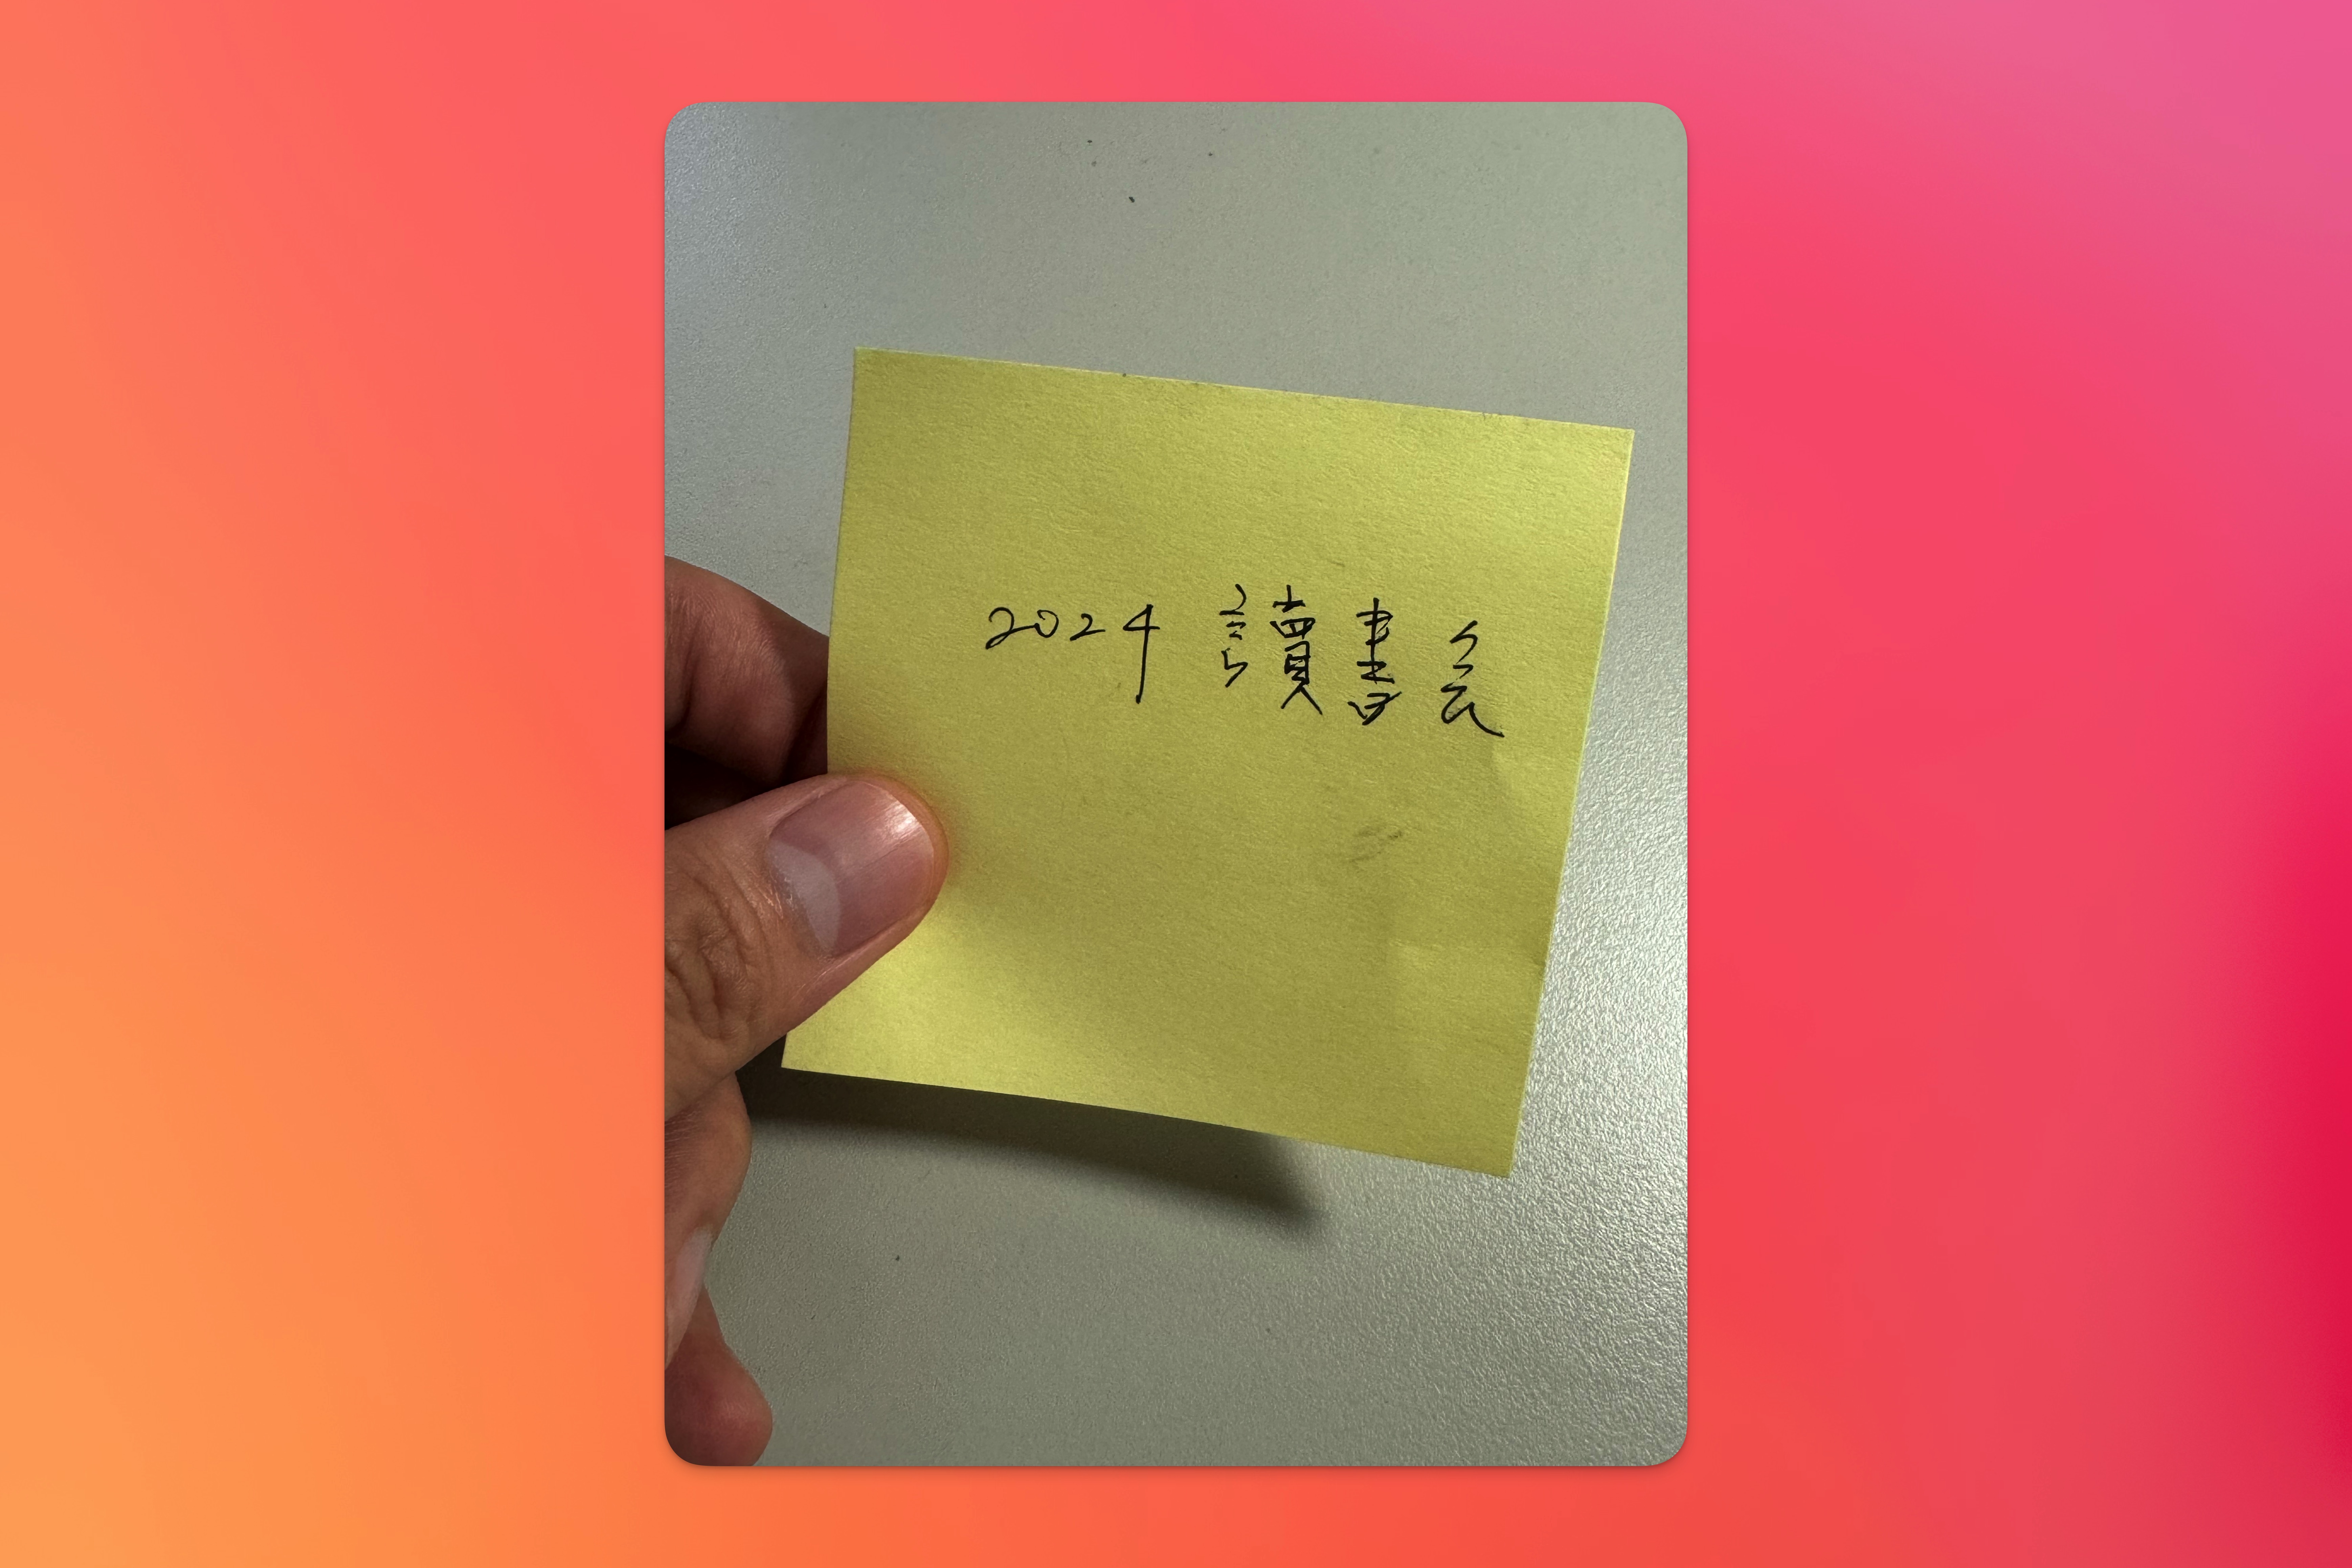 2024 讀書会